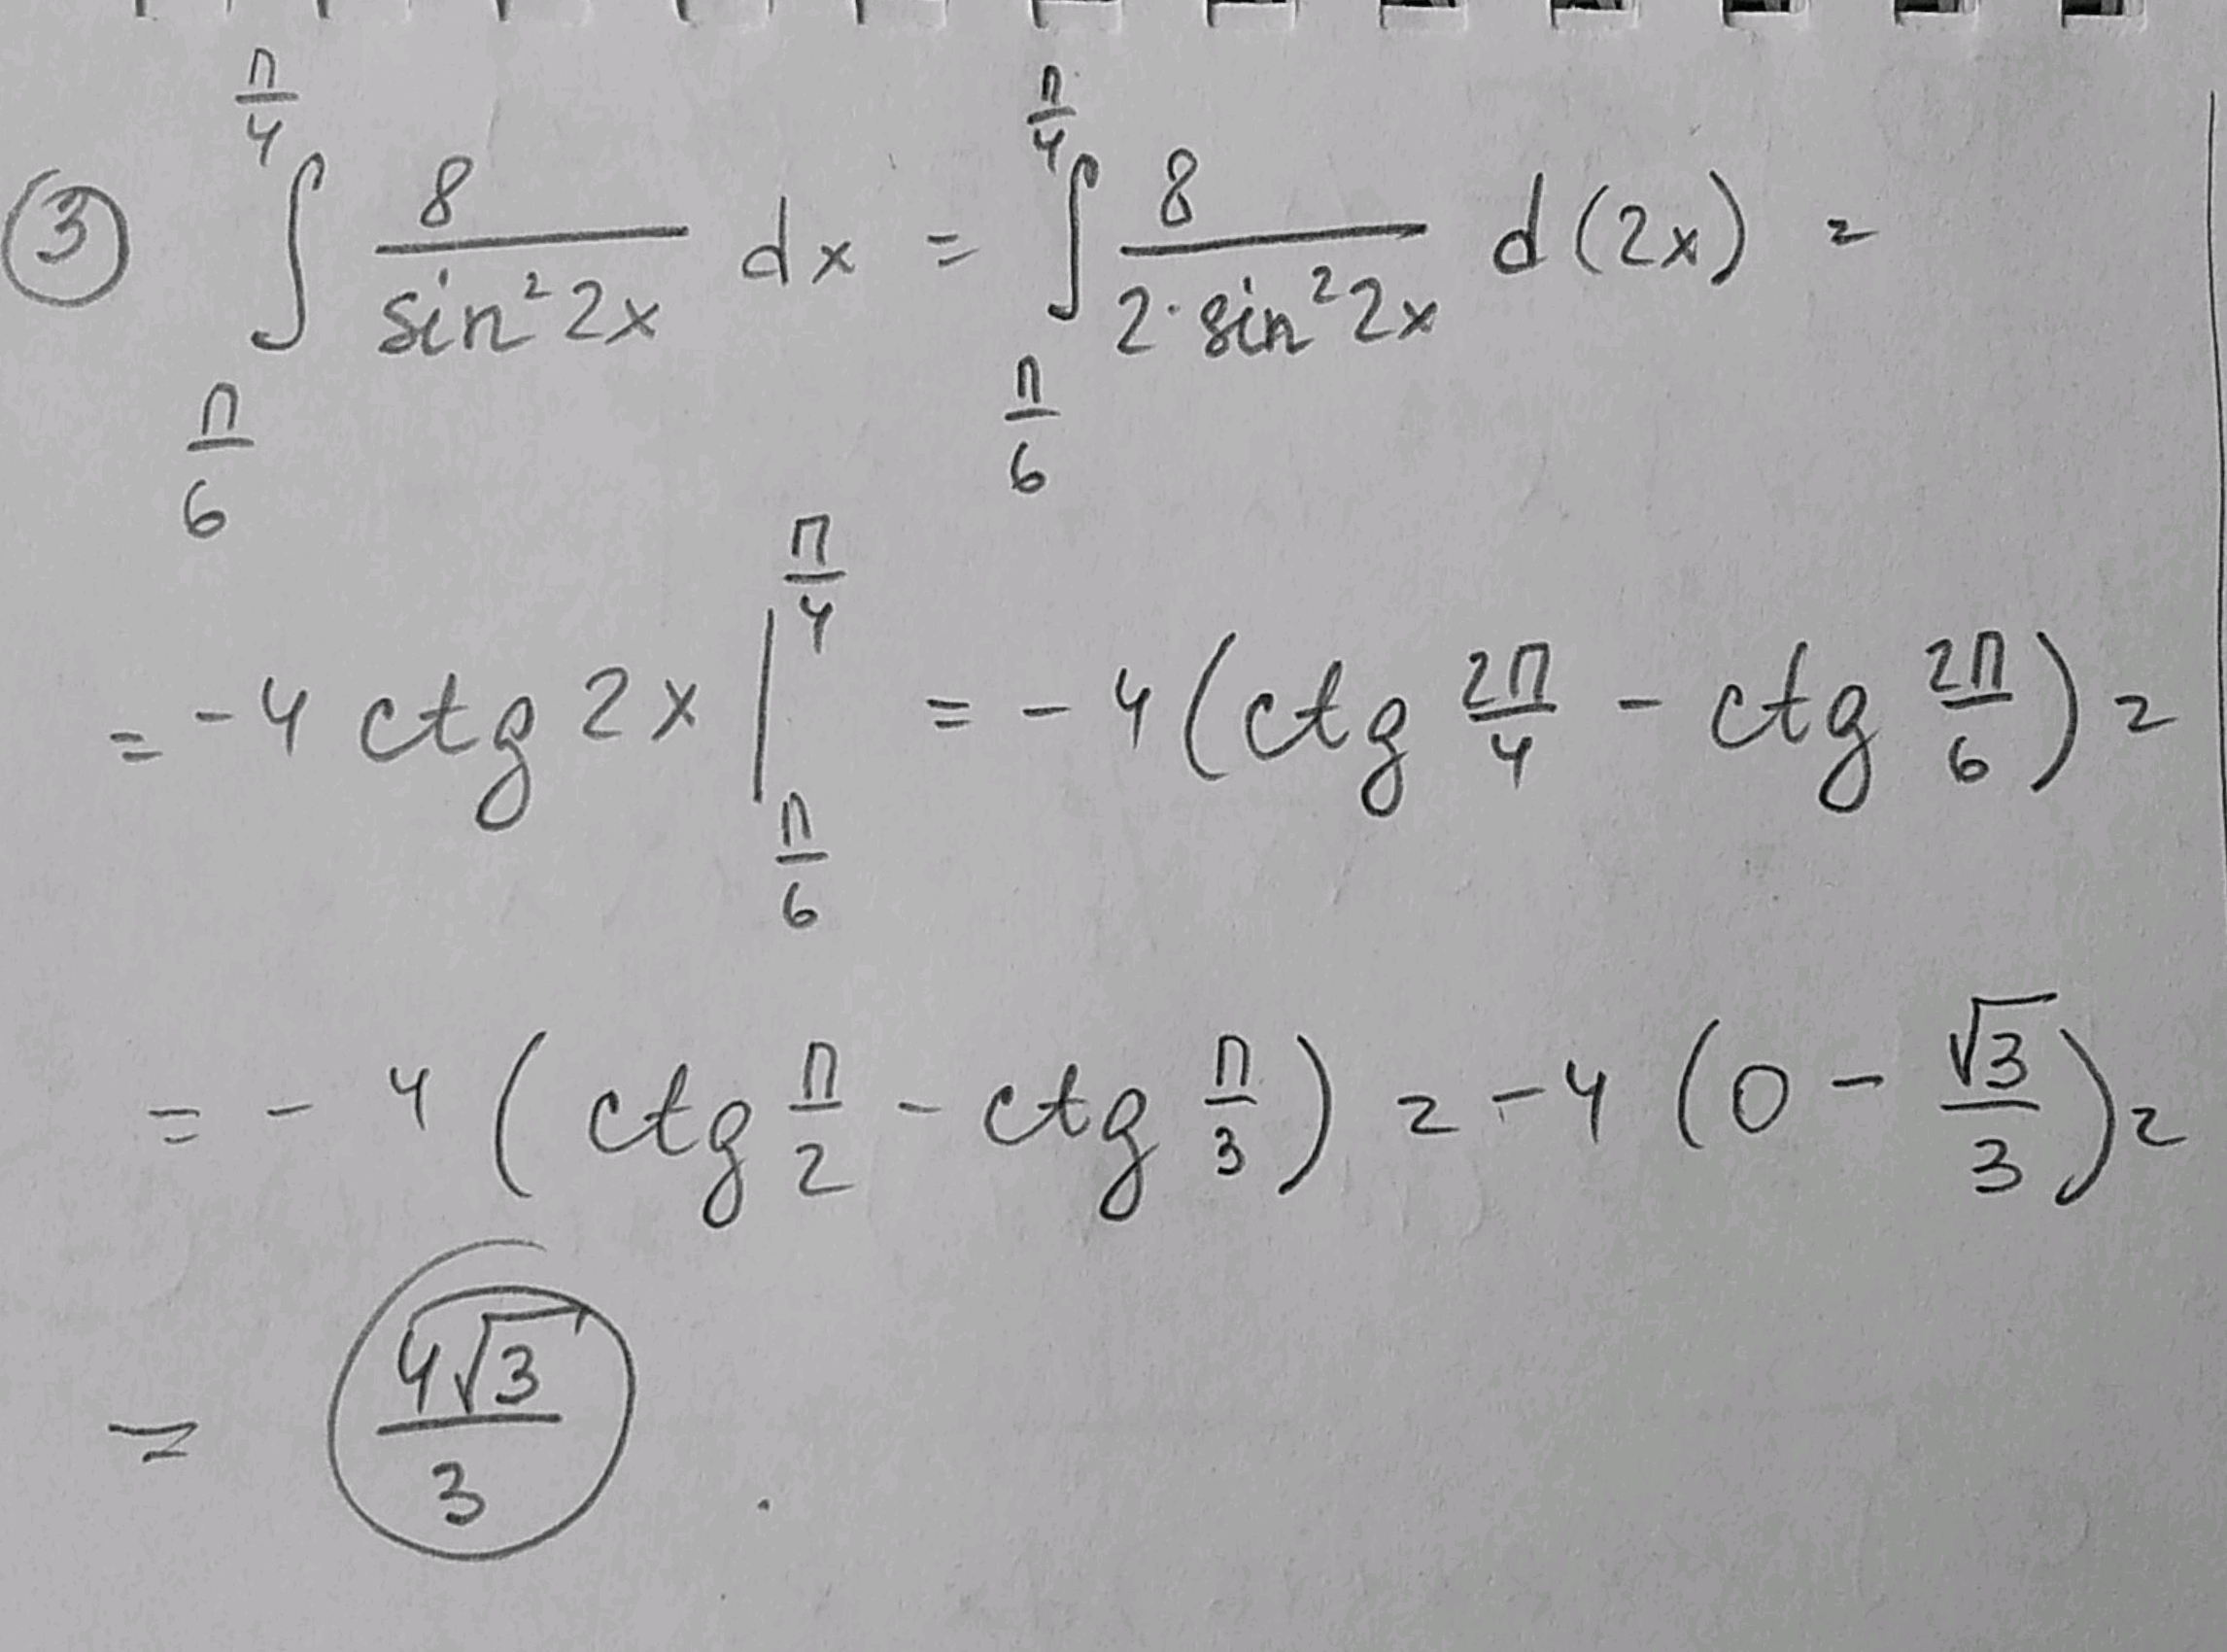 ③ ∫_{π/6}^{π/4} 8/(sin² 2x) dx = ∫_{π/6}^{π/4} 8/(2·sin² 2x) d(2x) =
= -4 ctg 2x |_{π/6}^{π/4} = -4 (ctg 2π/4 - ctg 2π/6) =
= -4 (ctg π/2 - ctg π/3) = -4 (0 - √3/3) =
= 4√3/3 .